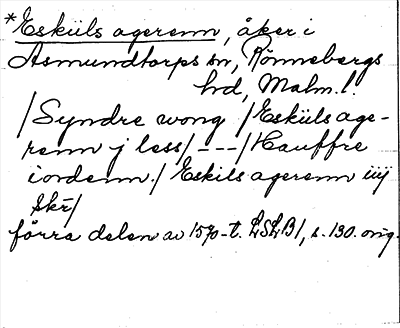 *Eskiils agerenn, åker i
Asmundtorps sn, Rönnebergs
hd, Malm. l.
/Syndre wong/Eskiils age-
renn j less/---/Hauffre
iordenn./Eskils agerenn iiij
skr/
förra delen av 1570-t. LSLB1, s. 130. orig.